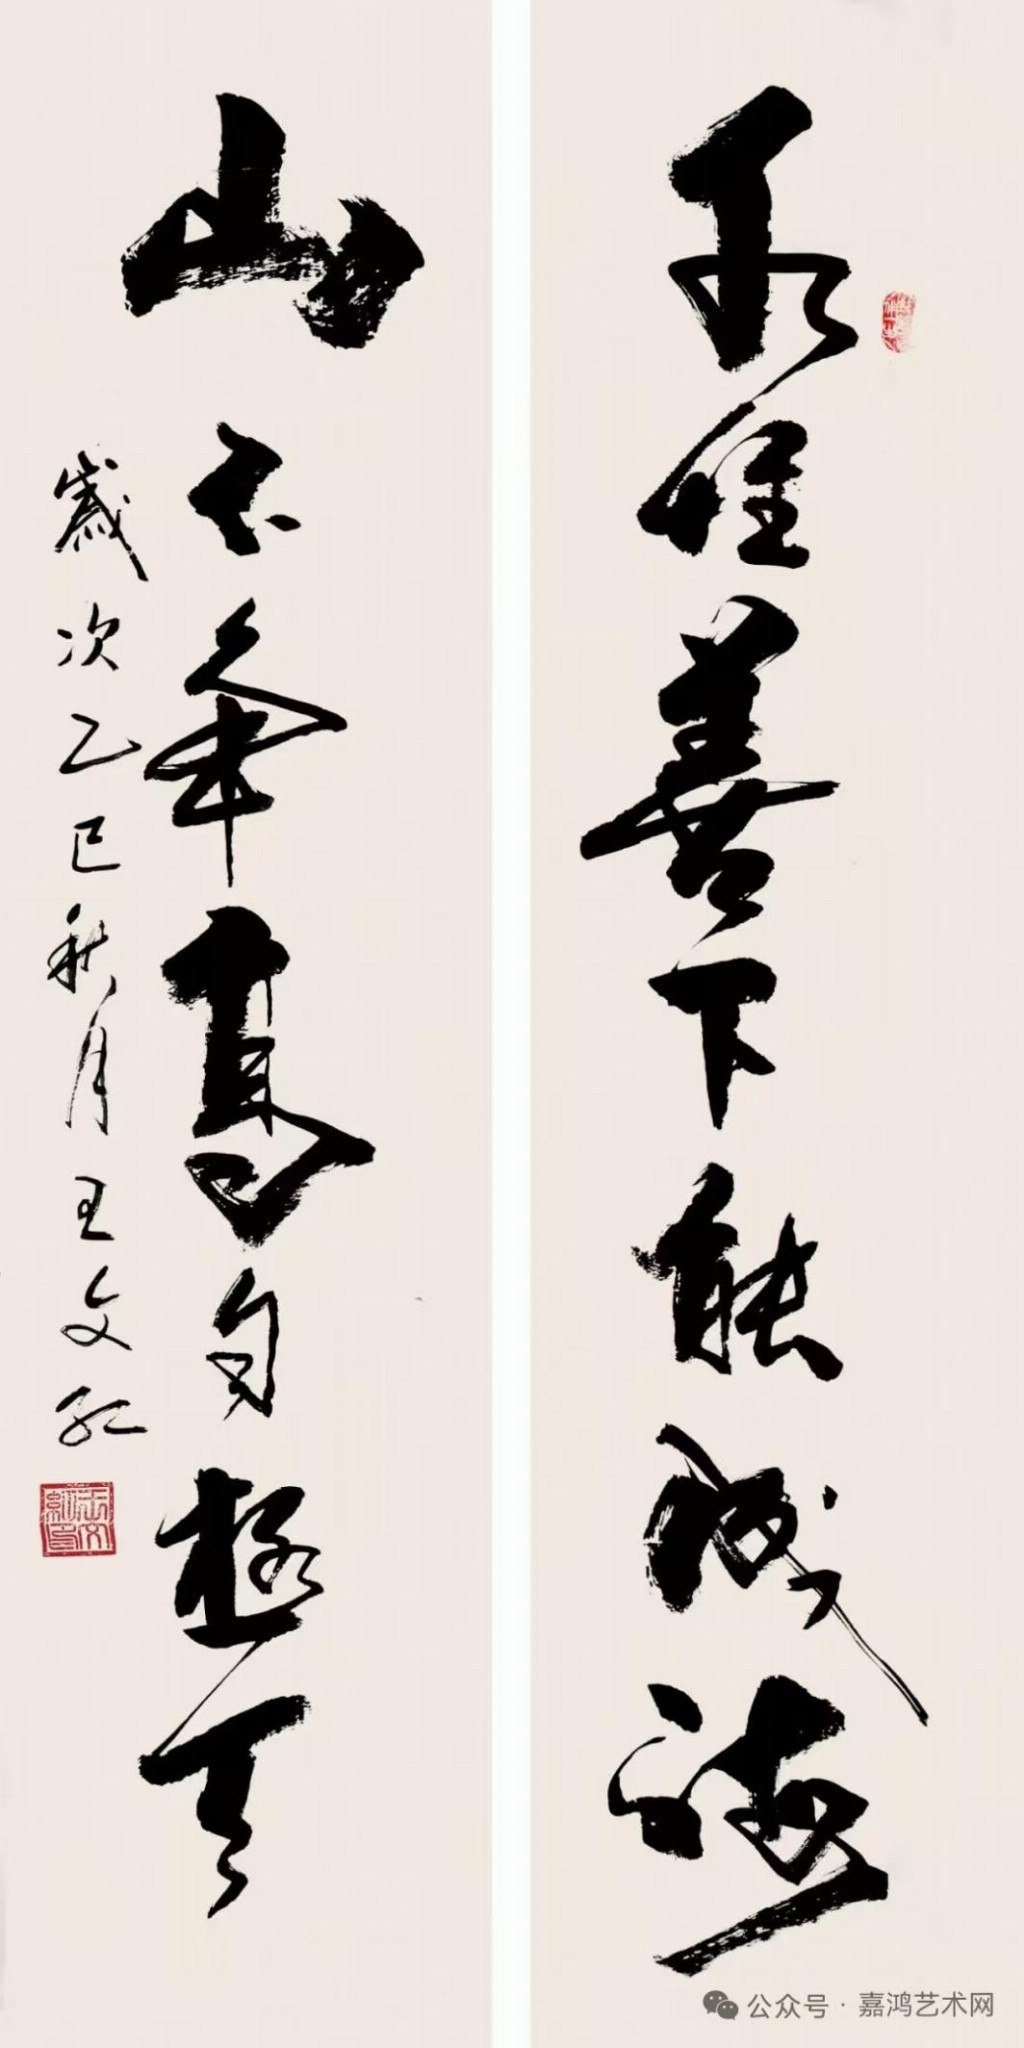 水惟善下能成海
山不争高自极天
岁次乙巳秋月王文红
公众号·嘉鸿艺术网